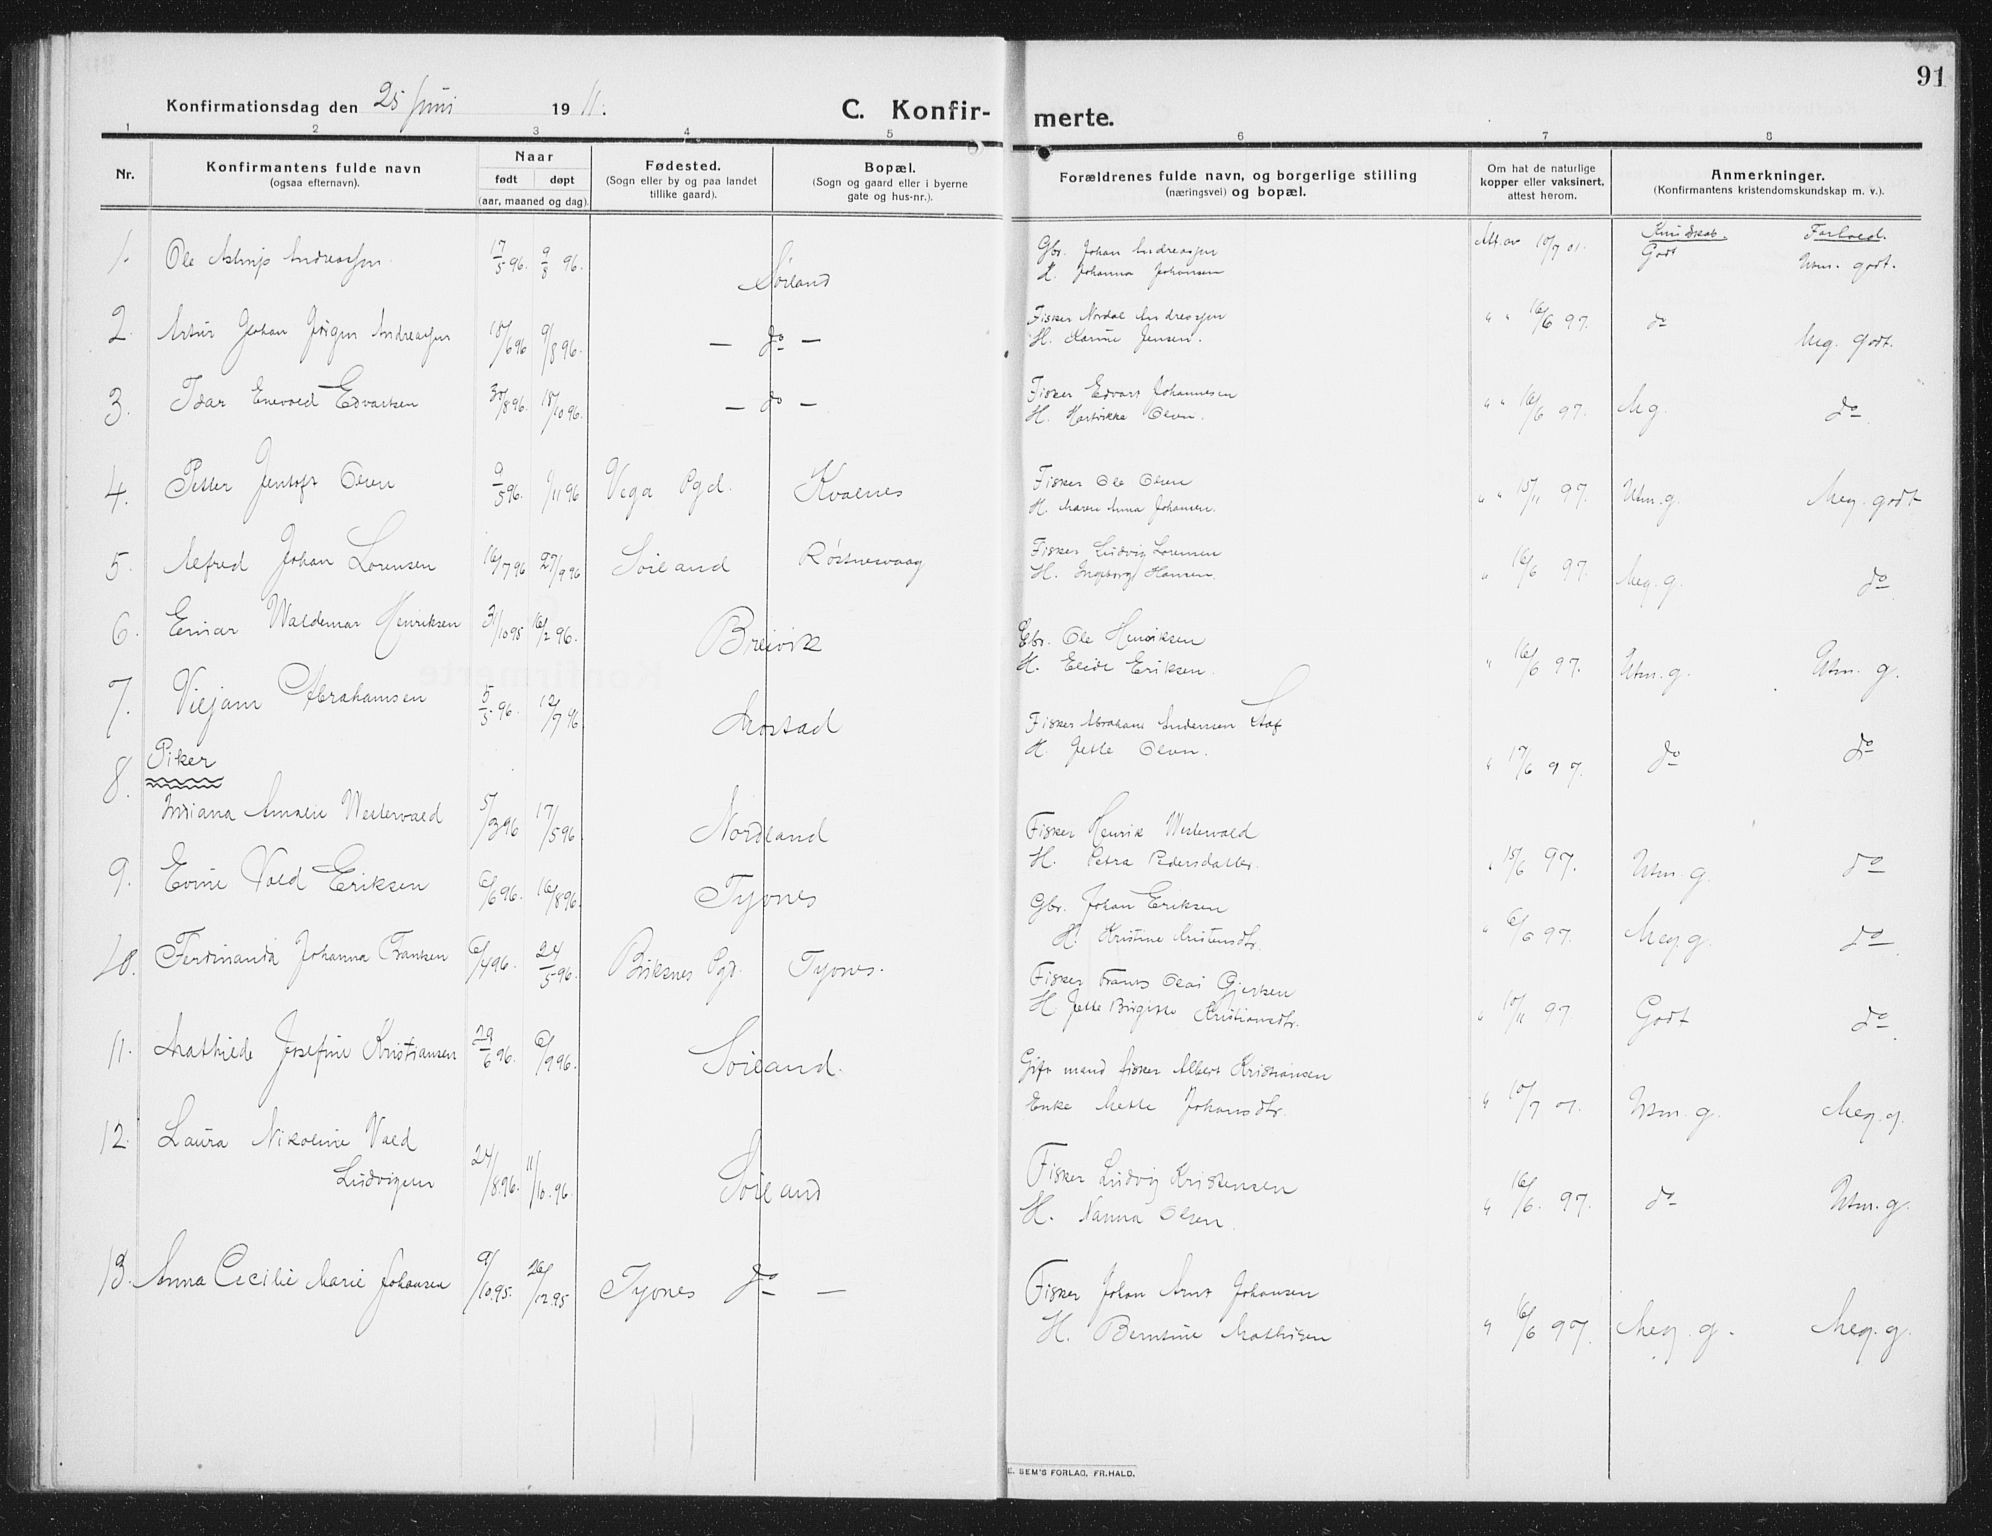 91
Konfirmationsdag den 25 Juni 1911.
C. Konfir-merte.
1 2 3 4 5 6 7 8
Nr.
Konfirmantens fulde navn
(ogsaa efternavn).
Naar
født døpt
(aar, maaned og dag).
Fødested.
(Sogn eller by og paa landet
tillike gaard).
Bopæl.
(Sogn og gaard eller i byerne
gate og hus-nr.).
Forældrenes fulde navn, og borgerlige stilling
(næringsvei) og bopæl.
Om hat de naturlige
kopper eller vaksinert,
attest herom.
Anmerkninger.
(Konfirmantens kristendomskundskap m. v.).
Kundskab. Forhold.
1. Ole Astrup Andreassen 17/5 96. 9/8 96. Søiland
Gbr. Johan Andreassen
H. Johanna Johansen
Att. av 10/7 01. Godt Utm. godt.
2. Artur Johan Jørgen Andreassen 18/6 96 9/8 96. — do —
Fisker Nordal Andreassen
H. Karine Jensen.
" " 16/6 97. do Meg. godt.
3. Isar Enevold Edvartsen 30/8 96. 18/10 96. — do —
Fisker Edvart Johannesen
H. Hartvikke Olsen.
" " 16/6 97. Mg. do
4. Petter Jentoft Olsen 9/5 96. 1/11 96 Vega Pgd. Kvalnes
Fisker Ole Olsen
H. Maren Anna Johansen.
" " 15/11 97. Utm. g. Meg. godt
5. Alfred Johan Lorensen 16/7 96 27/9 96 Søiland Røstnesvaag
Fisker Ludvig Lorensen
H. Ingeborg Hansen.
" 16/6 97. Meg. g. do
6. Einar Waldemar Henriksen 31/10 95 16/2 96. Breivik
Gbr. Ole Henriksen
H. Elide Eriksen.
" 16/6 97. Utm. g. Utm. g.
7. Viljam Abrahamsen 5/5 96. 12/7 96. Mostad
Fisker Abraham Andersen
H. Jette Olsen.
" 17/6 97. do do
8. Piker
Indiana Amalie Westervald 5/3 96 17/5 96. Nordland
Fisker Henrik Westervald
H. Petra Pedersdatter.
" 15/6 97. Utm. g. do
9. Evine Vold Eriksen 6/6 96. 16/8 96. Tyvnes
Gbr. Johan Eriksen
H. Kristine Kristensdtr.
" 6/6 97. Meg. g. do
10. Ferdinanda Johanna Frantsen 6/4 96. 24/5 96. Buksnes Pgd. Tyvnes.
Fisker Frants Olai Gjertsen
H. Jette Birgitte Kristiansdtr.
" 10/11 97 Godt do
11. Mathilde Josefine Kristiansen 29/6 96. 6/9 96. Søiland.
Gift mand fisker Albert Kristiansen
Enke Mette Johansdtr.
" 10/7 01. Utm. g. Meg. g.
12. Laura Nikoline Vold
Ludvigsen 24/8. 96. 11/10. 96. Søiland
Fisker Ludvig Kristensen
H. Nanna Olsen.
" 16/6. 97. do Utm. g.
13. Anna Cecilie Marie Johansen 9/10. 95. 26/12. 95 Tyvnes do —
Fisker Johan Arnt Johansen
H. Berntine Mathisen
" 16/6 97. Meg. g. Meg. g.
E. SEM'S FORLAG, FR.HALD.